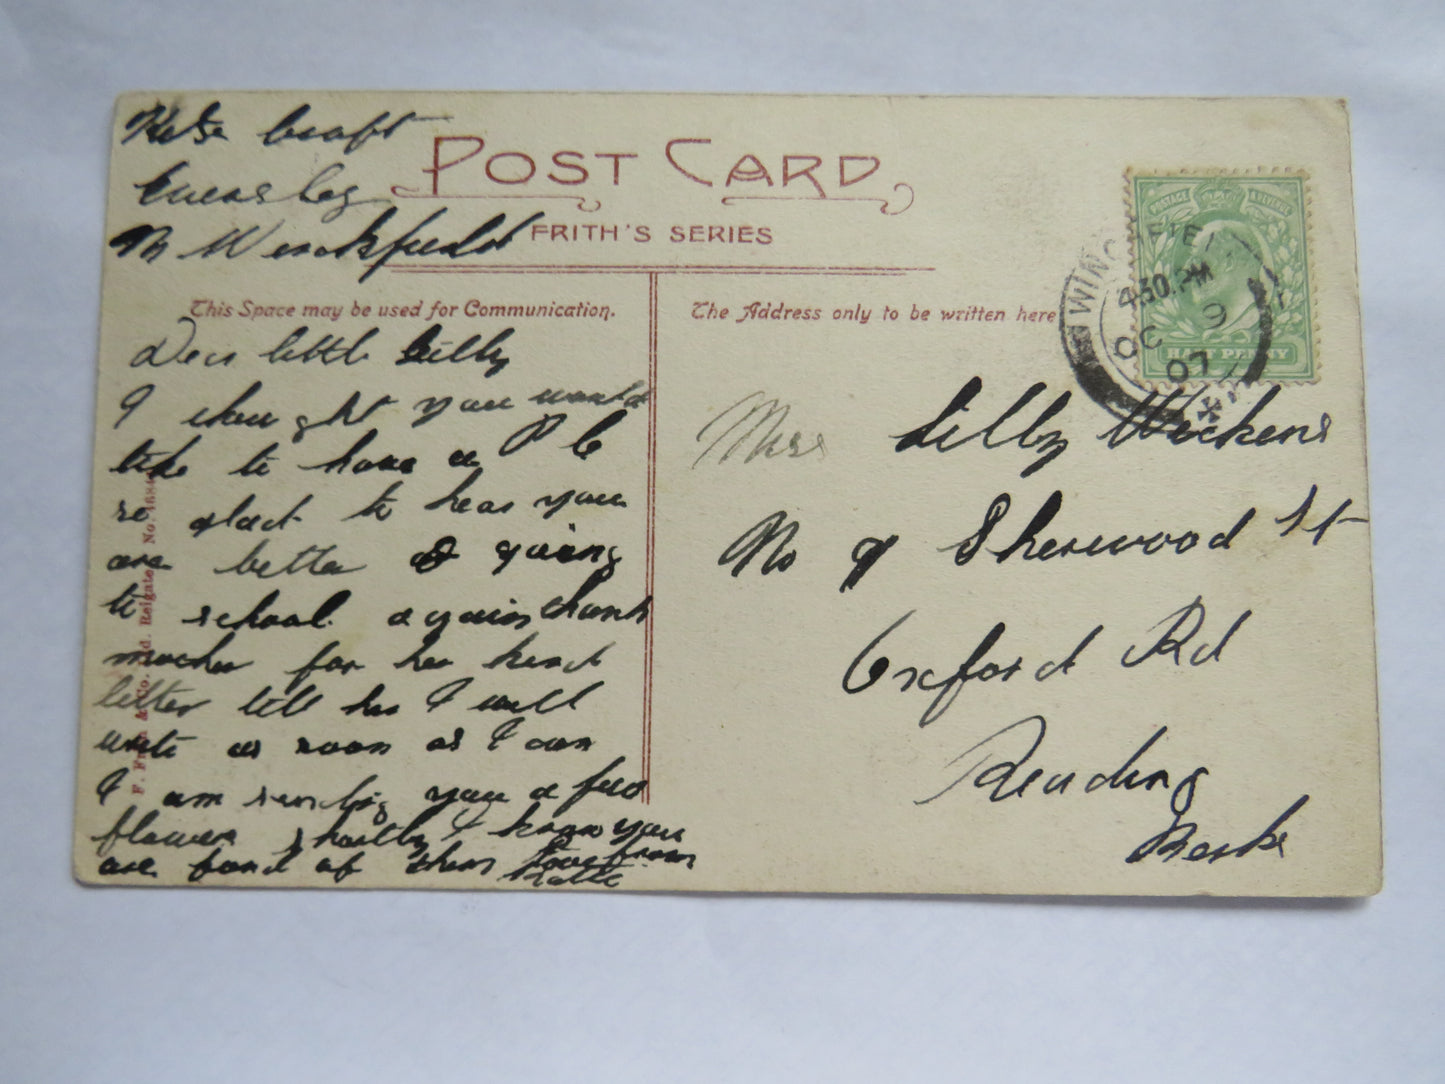 Croft
Eversley
Nr Winchfield
POST CARD
FRITH'S SERIES
This Space may be used for Communication.
The Address only to be written here
POSTAGE REVENUE
HALF PENNY
4.30 PM
OC 9
07
Dear little Lilly
I thought you would
like to have a P C
so glad to hear you
are better & going
to school again thank
mother for her kind
letter tell her I will
write as soon as I can
I am sending you a few
flowers shortly I know you
are fond of them love from
Katie
Miss Lilly Wickens
No 9 Sherwood St
Oxford Rd
Reading
Berks
F. Frith & Co. Ltd. Reigate. No.